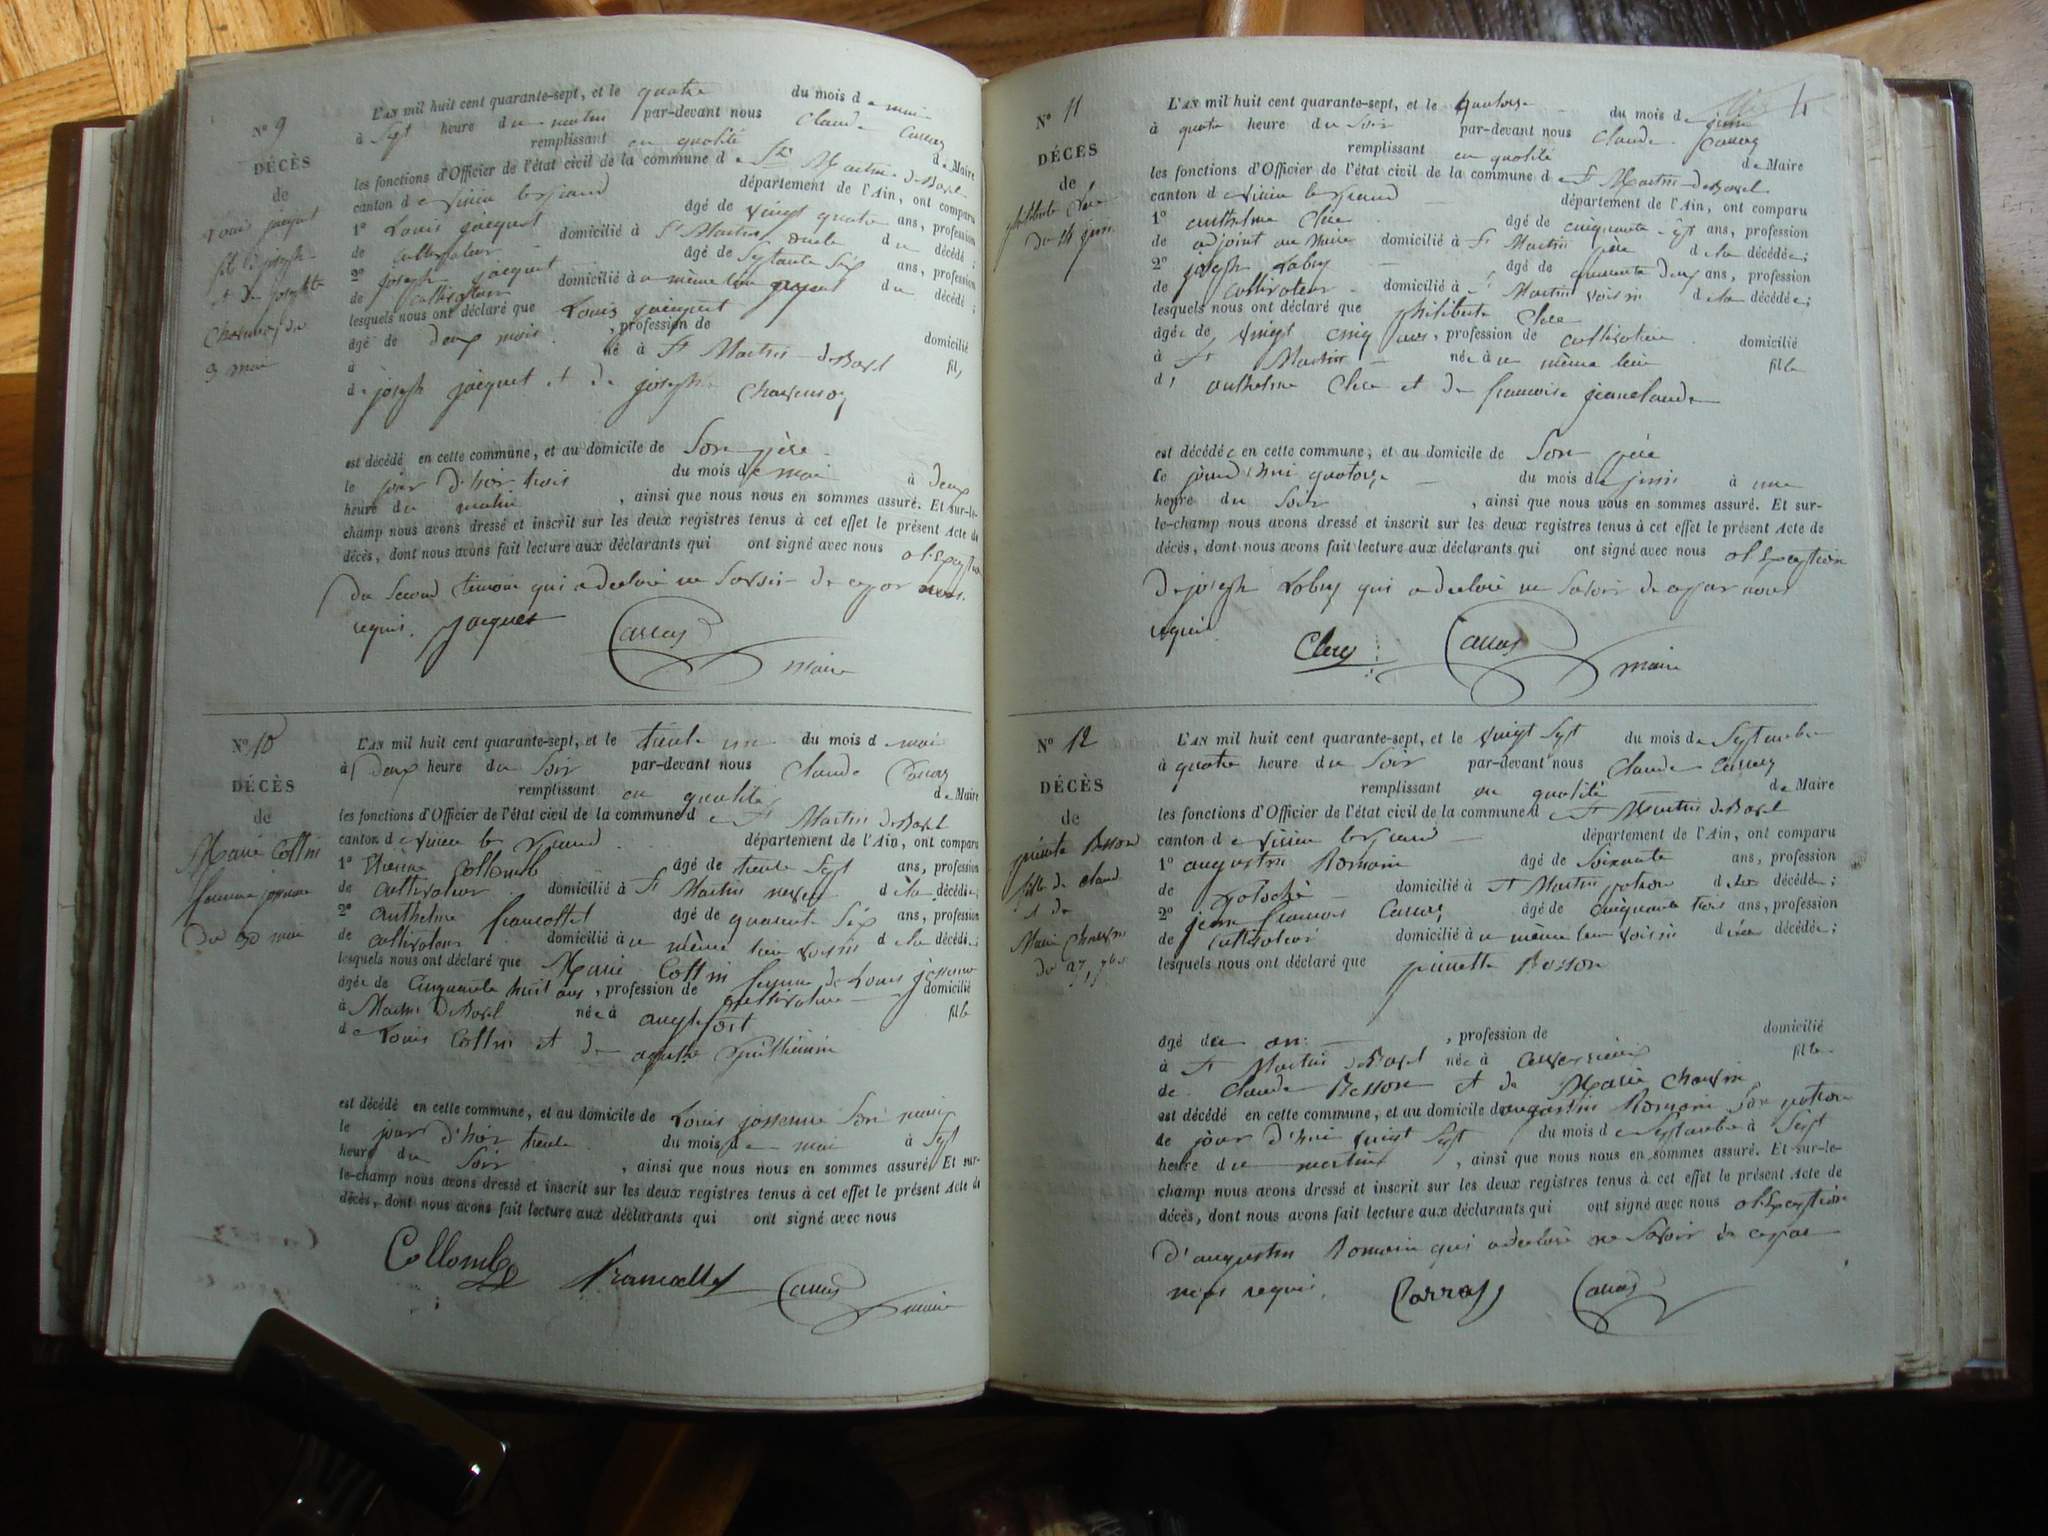 N° 9
DÉCÈS
de
Louis jacquet
fils de joseph
et de josephte
Charvensoy du
3 mai
L'AN mil huit cent quarante-sept, et le quatre du mois de mai
à sept heure du matin par-devant nous Claude Carray
remplissant en qualité de Maire
les fonctions d'Officier de l'état civil de la commune de St Martin de Bavel
canton de Virieu le grand département de l'Ain, ont comparu
1° Louis jacquet âgé de vingt quatre ans, profession
de cultivateur domicilié à St Martin oncle du décédé;
2° joseph jacquet âgé de septante six ans, profession
de cultivateur domicilié à u même lieu du décédé;
lesquels nous ont déclaré que Louis jacquet
âgé de deux mois, profession de domicilié
à né à St Martin de Bavel fils
de joseph jacquet et de josephte Charvensoy
est décédé en cette commune, et au domicile de son père
le jour d'hier trois du mois de mai à deux
heure du matin, ainsi que nous nous en sommes assuré. Et sur-le-
champ nous avons dressé et inscrit sur les deux registres tenus à cet effet le présent Acte de
décès, dont nous avons fait lecture aux déclarants qui ont signé avec nous
du second témoin qui a déclaré ne savoir de ce par nous
requis. jacquet Carray maire
N° 10
DÉCÈS
de
Marie Collin
femme
du 30 mai
L'AN mil huit cent quarante-sept, et le trente un du mois d mai
à deux heure du soir par-devant nous Claude Carray
remplissant en qualité de Maire
les fonctions d'Officier de l'état civil de la commune d e St Martin de Bavel
canton de Virieu le grand département de l'Ain, ont comparu
1° Etienne Collomb âgé de trente sept ans, profession
de cultivateur domicilié à St Martin neveu d e la décédée;
2° Anthelme francallet âgé de quarante six ans, profession
de cultivateur domicilié à u même lieu voisin d e la décédée;
lesquels nous ont déclaré que Marie Collin femme de Louis
âgée de cinquante huit ans, profession de cultivatrice domicilié
à Martin de Bavel née à anglefort fille
de Louis Collin et de
est décédé en cette commune, et au domicile de Louis son mari
le jour d'hier trente du mois de mai à sept
heure du soir, ainsi que nous nous en sommes assuré. Et sur-
le-champ nous avons dressé et inscrit sur les deux registres tenus à cet effet le présent Acte de
décès, dont nous avons fait lecture aux déclarants qui ont signé avec nous
Collomb Francallet Carray maire
4
N° 11
DÉCÈS
de
philiberte Clerc
du 14 juin
L'AN mil huit cent quarante-sept, et le quatorze du mois de juin
à quatre heure du soir par-devant nous Claude Carray
remplissant en qualité de Maire
les fonctions d'Officier de l'état civil de la commune d e St Martin de Bavel
canton d e Virieu le grand département de l'Ain, ont comparu
1° anthelme Clerc âgé de cinquante sept ans, profession
de adjoint au Maire domicilié à St Martin père d e la décédée;
2° joseph Lobry âgé de quarante deux ans, profession
de cultivateur domicilié à St Martin voisin d e la décédée;
lesquels nous ont déclaré que philiberte Clerc
âgée de vingt cinq ans, profession de cultivatrice domicilié
à St Martin née à u même lieu fille
d' anthelme Clerc et de francoise jeanclaude
est décédée en cette commune, et au domicile de son père
le jourd'hui quatorze du mois de juin à une
heure du soir, ainsi que nous nous en sommes assuré. Et sur-
le-champ nous avons dressé et inscrit sur les deux registres tenus à cet effet le présent Acte de
décès, dont nous avons fait lecture aux déclarants qui ont signé avec nous
de joseph Lobry qui a déclaré ne savoir de ce par nous
requis. Clerc Carray maire
N° 12
DÉCÈS
de
Besson
fille de Claud
et de
Marie
du 27 7bre
L'AN mil huit cent quarante-sept, et le vingt sept du mois de septembre
à quatre heure du soir par-devant nous Claude Carray
remplissant en qualité de Maire
les fonctions d'Officier de l'état civil de la commune d e St Martin de Bavel
canton d e Virieu le grand département de l'Ain, ont comparu
1° augustin Romain âgé de soixante ans, profession
de domicilié à St Martin patron de la décédée;
2° jean francois Carray âgé de cinquante trois ans, profession
de cultivateur domicilié à u même lieu voisin décédée;
lesquels nous ont déclaré que Besson
âgé d un an, profession de domicilié
à St Martin de Bavel née à fille
de Claude Besson et de Marie
est décédé en cette commune, et au domicile d augustin Romain son patron
le jour d'hui vingt sept du mois de septembre à sept
heure du matin, ainsi que nous nous en sommes assuré. Et sur-le-
champ nous avons dressé et inscrit sur les deux registres tenus à cet effet le présent Acte de
décès, dont nous avons fait lecture aux déclarants qui ont signé avec nous
d'augustin Romain qui a déclaré ne savoir de ce par
nous requis. Carray Carray